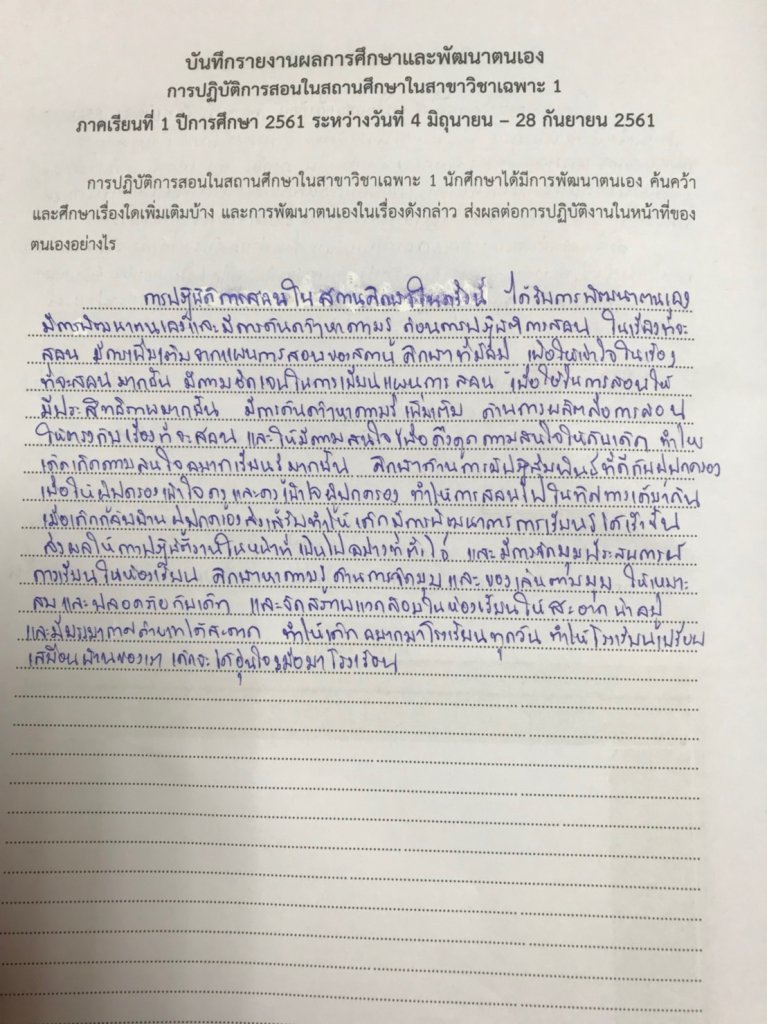 บันทึกรายงานผลการศึกษาและพัฒนาตนเอง
การปฏิบัติการสอนในสถานศึกษาในสาขาวิชาเฉพาะ 1
ภาคเรียนที่ 1 ปีการศึกษา 2561 ระหว่างวันที่ 4 มิถุนายน – 28 กันยายน 2561
การปฏิบัติการสอนในสถานศึกษาในสาขาวิชาเฉพาะ 1 นักศึกษาได้มีการพัฒนาตนเอง ค้นคว้า
และศึกษาเรื่องใดเพิ่มเติมบ้าง และการพัฒนาตนเองในเรื่องดังกล่าว ส่งผลต่อการปฏิบัติงานในหน้าที่ของ
ตนเองอย่างไร
การปฏิบัติการสอนใน สถานศึกษาในครั้งนี้ ได้รับการพัฒนาตนเอง
มีการพัฒนาตนเองและมีการค้นคว้าหาความรู้ ก่อนการปฏิบัติการสอน ในเรื่องที่จะ
สอน มีการเพิ่มเติมจากแผนการสอนของสถานศึกษาที่มี เพื่อให้เข้าใจในเรื่อง
ที่จะสอนมากขึ้น มีความชัดเจนในการเขียนแผนการ สอน เพื่อใช้ในการสอนให้
มีประสิทธิภาพมากขึ้น มีการค้นคว้าหาความรู้ เพิ่มเติม ด้านการผลิตสื่อการสอน
ให้ตรงกับเรื่องที่จะสอน และให้มีความสนใจเพื่อดึงดูดความสนใจให้กับเด็ก ทำให้
เด็กเกิดความสนใจอยากเรียนรู้มากขึ้น ศึกษาด้านการมีปฏิสัมพันธ์ที่ดีกับผู้ปกครอง
เพื่อให้ผู้ปกครองเข้าใจครู และครูเข้าใจผู้ปกครอง ทำให้การสอนไปในทิศทางเดียวกัน
เมื่อเด็กกลับบ้าน ผู้ปกครองส่งเสริมทำให้ เด็กมีการพัฒนาการการเรียนรู้ได้เร็วขึ้น
ส่งผลให้การปฏิบัติงานในหน้าที่ เป็นไปอย่างที่ตั้งไว้ และมีการจัดมุมประสบการณ์
การเรียนในห้องเรียน ศึกษาหาความรู้ ด้านการจัดมุม และของเล่นตามมุม ให้เหมาะ
สมและปลอดภัยกับเด็ก และจัดสภาพแวดล้อมในห้องเรียนให้ สะอาด น่าอยู่
และมีอากาศถ่ายเทได้สะดวก ทำให้เด็ก อยากมาโรงเรียนทุกวัน ทำให้โรงเรียนเปรียบ
เสมือนบ้านของเรา เด็กจะได้อุ่นใจเมื่อมาโรงเรียน